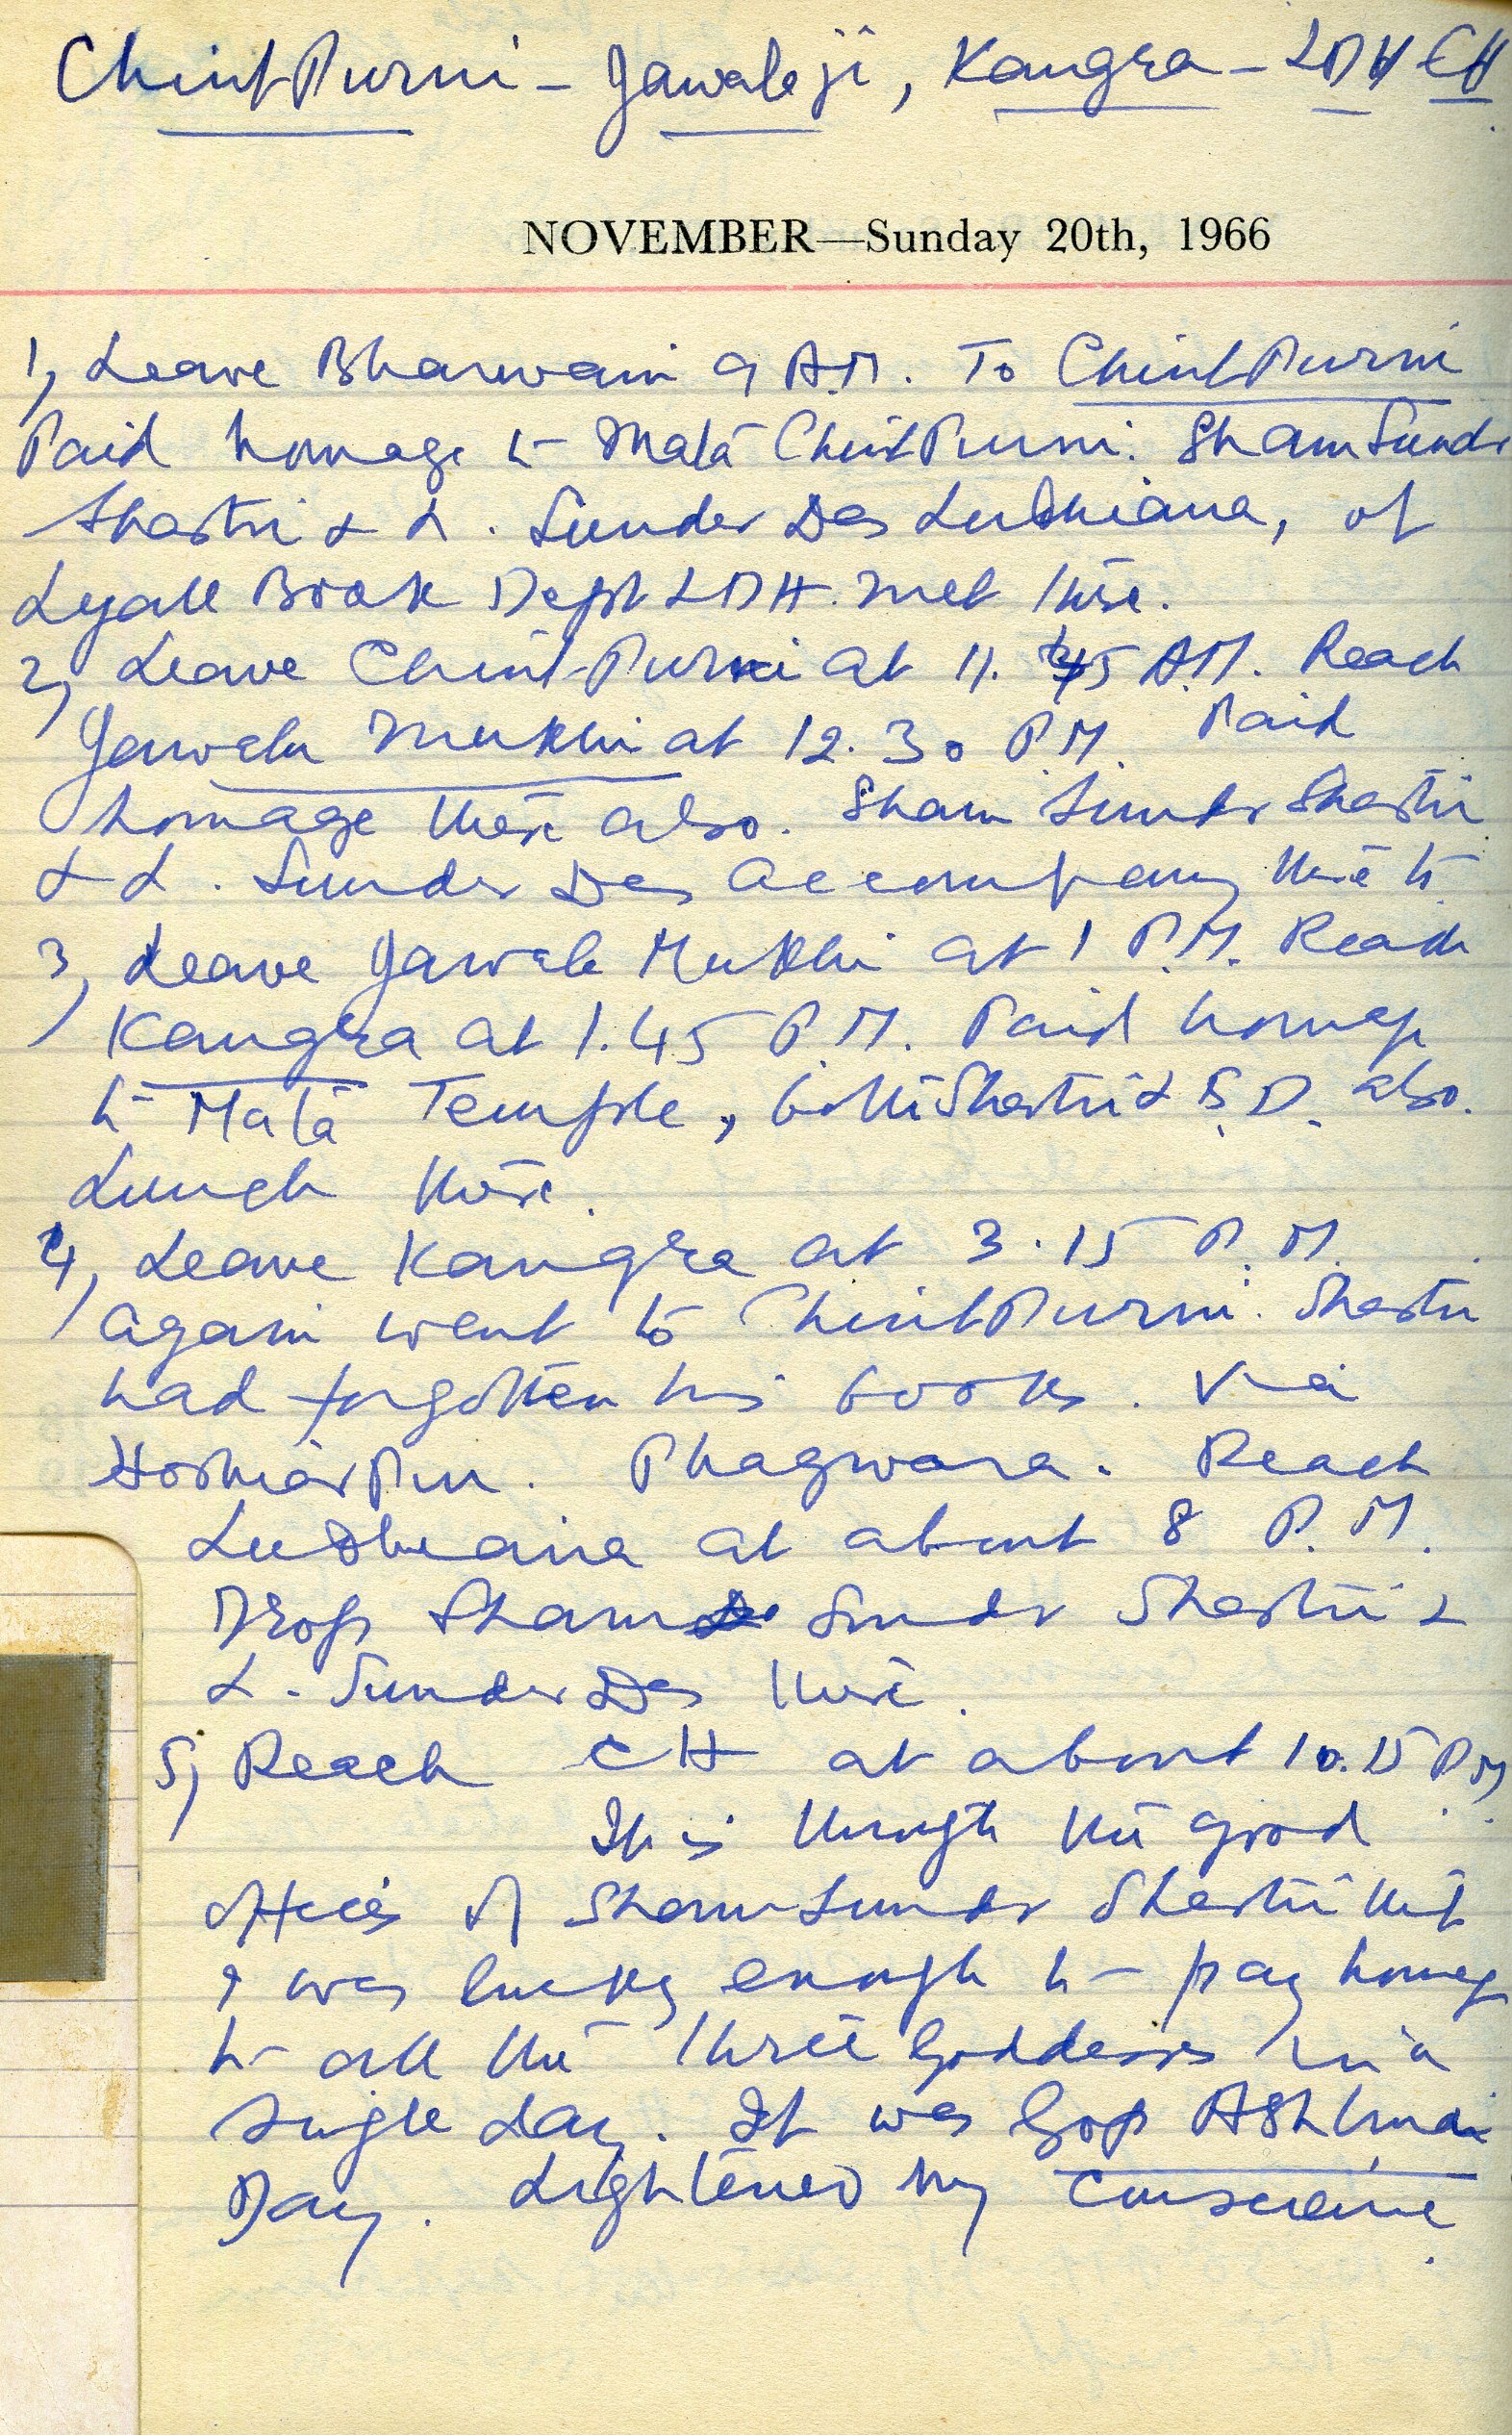 ChintPurni - Jawalaji, Kangra - LDH CH
NOVEMBER—Sunday 20th, 1966
1, Leave Bharwain 9 A.M. To ChintPurni
Paid homage to Mata ChintPurni. Sham Sunder
Shastri & L. Sunder Das Ludhiana, of
Lyall Book Dept LDH. met there.
2, Leave ChintPurni at 11.45 A.M. Reach
Jawala Mukhi at 12.30 P.M. Paid
homage there also. Sham Sunder Shastri
& L. Sunder Das accompany there to
3, Leave Jawala Mukhi at 1 P.M. Reach
Kangra at 1.45 P.M. Paid homage
to Mata Temple, both Shastri & S.D. also.
Lunch there.
4, Leave Kangra at 3.15 P.M.
again went to ChintPurni. Shastri
had forgotten his books. Via
HoshiarPur. Phagwara. Reach
Ludhiana at about 8 P.M.
Drop Sham Sunder Shastri &
L. Sunder Das there.
5, Reach CH at about 10.15 PM
It is through the good
offices of Sham Sunder Shastri that
I was lucky enough to pay homage
to all the three Goddesses in a
single day. It was Gop Ashtmi
Day. Lightened my conscience.